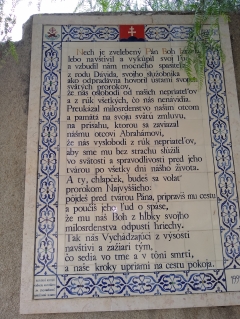 Nech je zvelebený Pán Boh Izraela
lebo navštívil a vykúpil svoj ľud
a vzbudil nám mocného spasiteľa
z rodu Dávida, svojho služobníka
ako odpradávna hovoril ústami svojich
svätých prorokov,
že nás oslobodí od našich nepriateľov
a z rúk všetkých, čo nás nenávidia.
Preukázal milosrdenstvo našim otcom
a pamätá na svoju svätú zmluvu,
na prísahu, ktorou sa zaviazal
nášmu otcovi Abrahámovi,
že nás vyslobodí z rúk nepriateľov,
aby sme mu bez strachu slúžili
vo svätosti a spravodlivosti pred jeho
tvárou po všetky dni nášho života.
A ty, chlapček, budeš sa volať
prorokom Najvyššieho:
pôjdeš pred tvárou Pána, pripravíš mu cestu
a poučíš jeho ľud o spáse,
že mu náš Boh z hĺbky svojho
milosrdenstva odpustí hriechy.
Tak nás Vychádzajúci z výsosti
navštívi a zažiari tým,
čo sedia vo tme a v tôni smrti,
a naše kroky upriami na cestu pokoja.